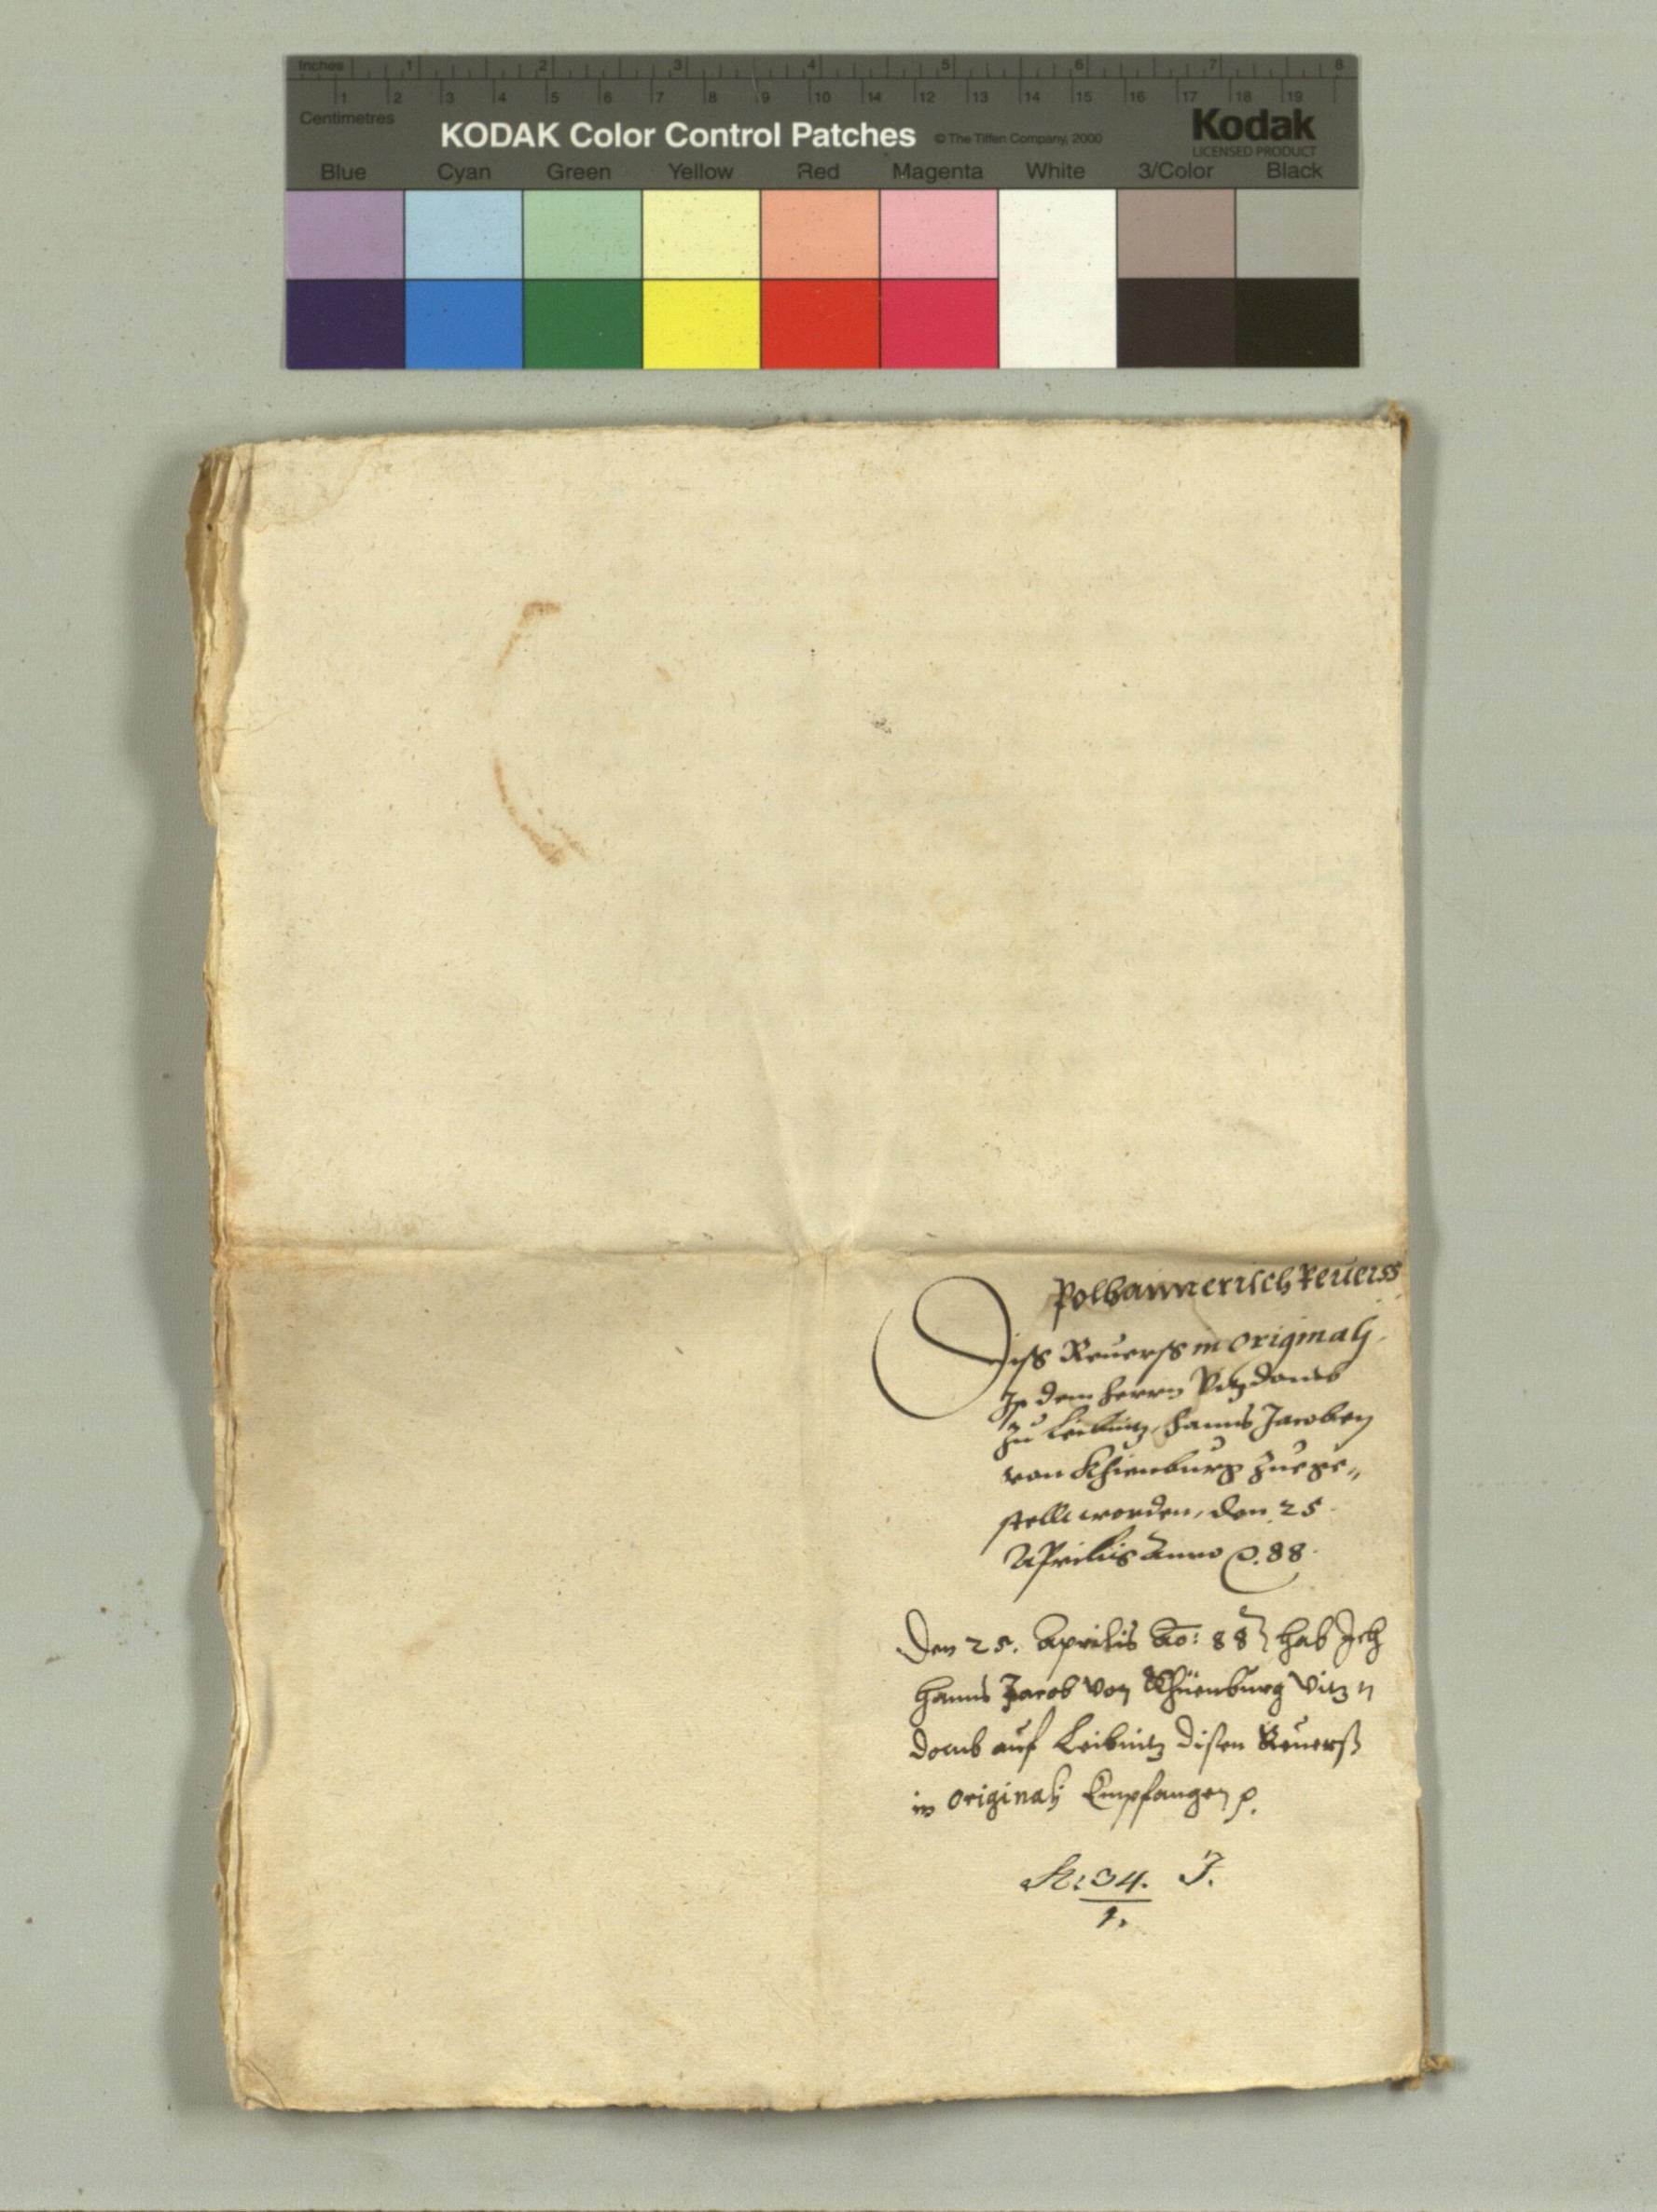 Inches 1 2 3 4 5 6 7 8
1 2 3 4 5 6 7 8 9 10 14 12 13 14 15 16 17 18 19
Centimetres
KODAK Color Control Patches © The Tiffen Company, 2000 Kodak
LICENSED PRODUCT
Blue Cyan Green Yellow Red Magenta White 3/Color Black
Reuerss
Diss Reuerss in originalj
Ist dem herrn Vitzdomb
zu Leibnitz, Hanns Jacoben
von Khienburg zuege„
stellt worden, den 25.
Aprilis Anno 88.
Den 25. Aprilis Ao: 88 hab Ich
Hanns Jacob von Khüenburg Vitz„
domb auf Leibnitz disen Reuerß
in originalj Empfangen
34. J.
1.